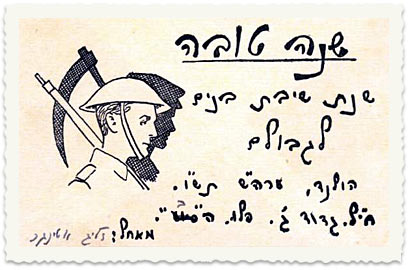 שנה טובה
שנת שיבת בנים
לגבולם
הולנד, ערה"ש תש"ו.
חי"ל. גדוד ג'. פלו.
מאחל: